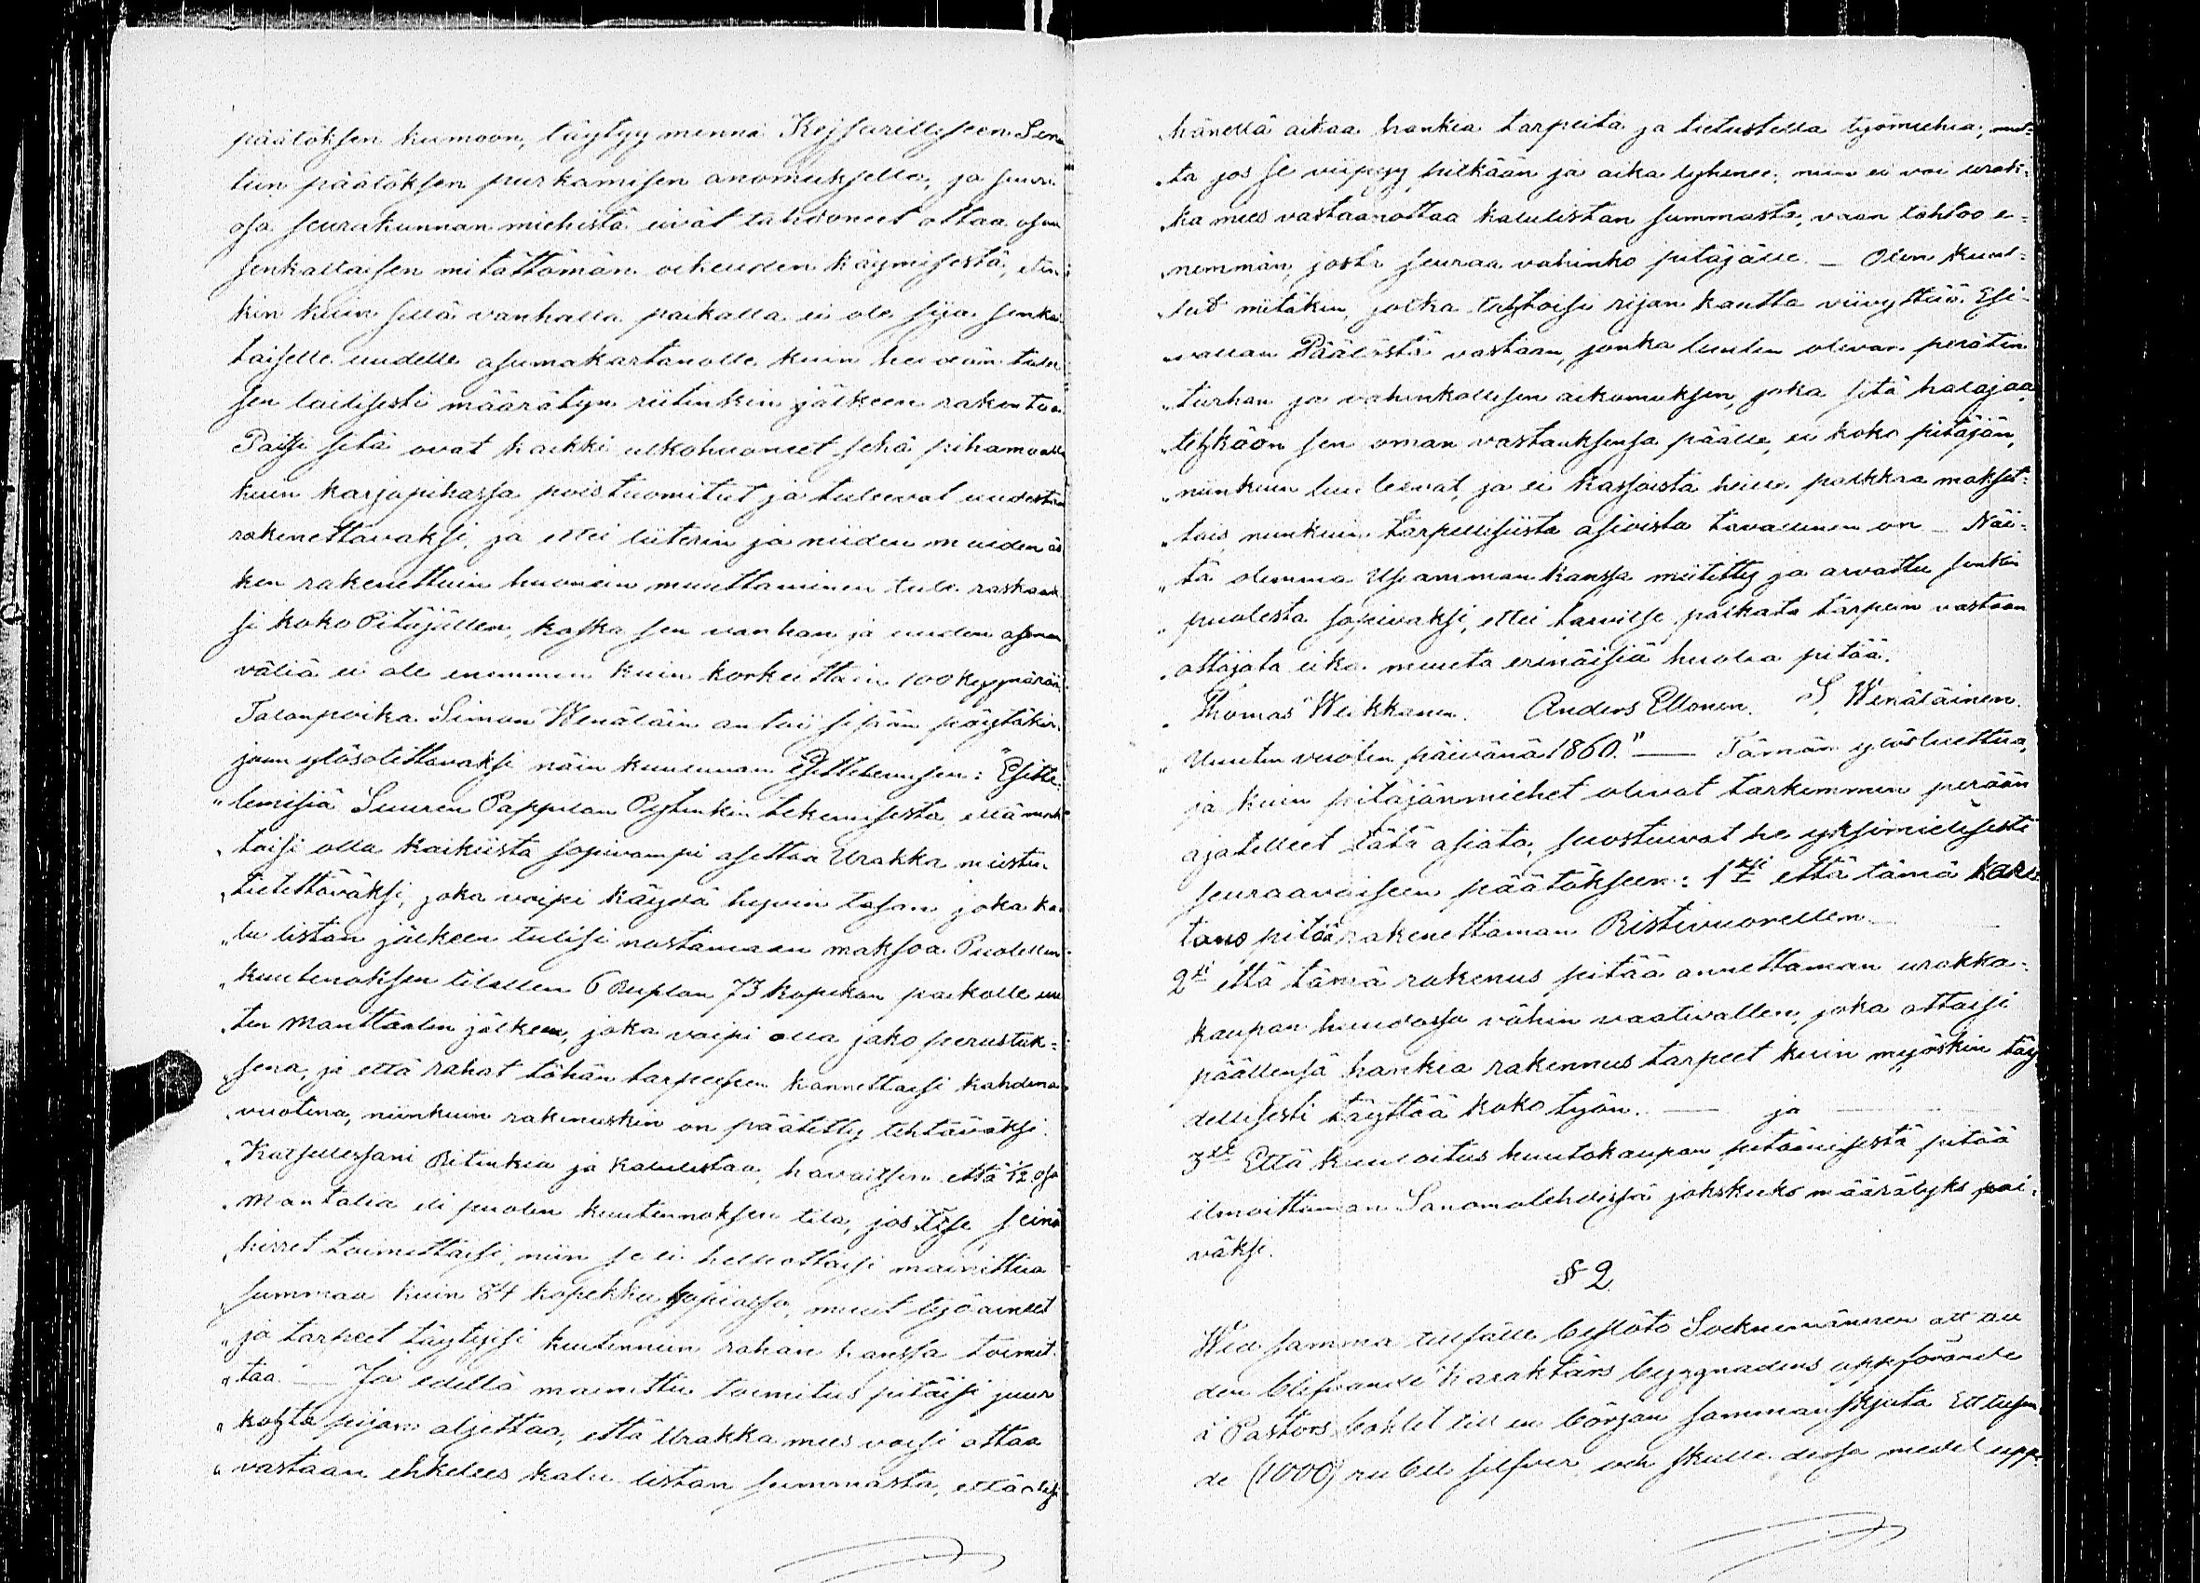 päätöksen kumoon, täytyy mennä Kejsarilliseen Sena
tiin päätöksen purkamisen anomuksella, ja suuri
osa seurakunnan miehistä eivät tahtoneet ottaa osaa
senkaltaisen mitättömän oikeuden käymisestä, eten
kin kuin sillä vanhalla paikalla ei ole sija senkal
taiselle uudelle asumakartanolle kuin heidän tulee
sen laillisesti määrätyn ritinkin jälkeen rakentaa
Paitsi sitä ovat kaikki ulkohuoneet sekä pihamaalla
kuin karjapihassa poistuomitut ja tulevat uudestaan
rakenettavaksi, ja ettei liiterin ja niiden muiden äs
ken rakenettuin huonein muuttaminen tule raskaak
si koko Pitäjällen, koska sen vanhan ja uuden aseman
väliä ei ole enemmän kuin korkeittain 100 kyynärää.
Talonpoika Simon Wenäläin antoi sisään pöytäkir
jaan ylösotettavaksi näin kuuluvan Esittelemisen: "Esitte
"lemisiä Suuren Pappilan Bytinkin tekemisestä, että mah
"taisi olla kaikiista sopivampi asettaa Urakka miestä
"tietettäväksi, joka voipi käydä hyvin tasan joka ka
"lu listan jälkeen tulisi nostamaan maksoa Puolellen
"kuutenoksen tilallen 6 Ruplan 73 kopekan paikolle uu
"ten Manttaalin jälkeen, joka voipi olla jako perustuk=
"sena, ja että rahat tähän tarpeeseen kannettaisi kahdena
"vuotena, niinkuin rakenuskin on päätetty tehtäväksi.
"Katsellessani Ritinkiä ja Kalulistaa, havaitsin että 1/12 osa
"Mantalia eli puolen kuutennoksen tila, jos itse seinä
"hirret toimittaisi, niin se ei helliottaisi mainittua
"summaa kuin 84 kopekka hopiassa, muut työaineet
"ja tarpeet täytyisi kuitenniin rahan kanssa toimit
"taa. — Ja edellä mainittu toimitus pitäisi juur
"kohta pijan aljettaa, että Urakka mies voisi ottaa
"vastaan ehkelees kalu listan summasta, että olisi
"hänellä aikaa hankia tarpeita ja tietustella työmiehiä, mut=
"ta jos se viipyy pitkään ja aika lyhenee, niin ei voi urak=
"ka mies vastaanottaa kalulistan summasta, vaan tahtoo e=
"nemmän, josta seuraa vahinko pitäjälle. — Olen kuul=
"lut miitäkin, jotka tahtoisi rijan kautta viivyttää Esi=
"vallan Päätöstä vastaan, jonka luulen olevan perätin
"turhan ja vahinkollisen aikomuksen, joka sitä halajaa,
"tehkään sen oman vastauksensa päälle, ei koko pitäjän,
"niinkuin luulevat, ja ei kassoista heille palkkaa makset=
"tais, niinkuin tarpellisista asioista tavallinen on — Näi=
"tä olemma Usiamman kanssa miitetty ja arvattu senkin
"puolesta sopivaksi, ettei tarvitse paikata tarpeen vastaan
"ottajata eikä muuta erinäisiä huolia pitää.
"Thomas Weikkanen. Anders Ellonen. S. Wenäläinen.
"Uuden vuoden päivänä 1860." — Tämän ylösluettua,
ja kuin pitäjänmiehet olivat tarkemmin perään
ajatelleet tätä asiata, suostuivat he yksimielisesti
seuraavaiseen päätökseen: 1ksi että tämä kar
tano pitää rakenettaman Ristivuorellen —
2ksi että tämä rakenus pitää annettaman urakka=
kaupan huudossa vähin vaativallen, joka ottaisi
päällensä hankia rakennus tarpeet kuin myöskin täy
dellisesti täyttää koko työn. — ja —
3ksi Että kuuloitus huutokaupan pitämisestä pitää
ilmoittaman Sanomalehdissä jokskuks määrätyks päi=
väksi.
§ 2.
Wid samma tillfälle beslöto Sockenmännen att till
den blifvande karaktärs byggnadens uppförande
å Pastors bohlet till en början sammanskjuta Ett tusen
de (1000) rubell silfver, och skulle dessa medel upp=